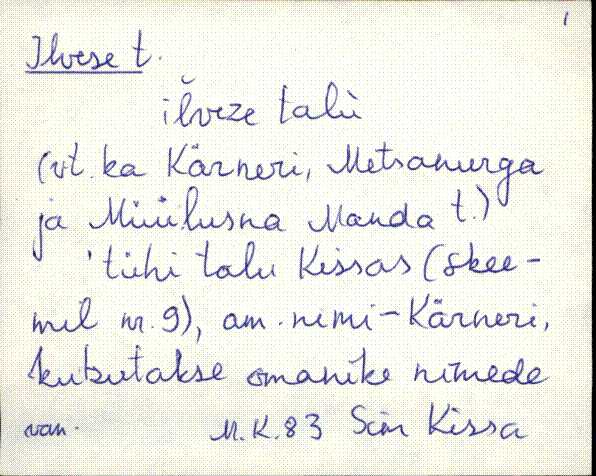 1
Ilvese t.
iľveze talù
(vt. ka Kärneri, Metsanurga
ja Müülusna Manda t.)
'tühi talu Kissas (skee-
mil nr. 9), am. nimi - Kärneri,
kutsutakse omanike nimede
van. M.K.83 Sim Kissa